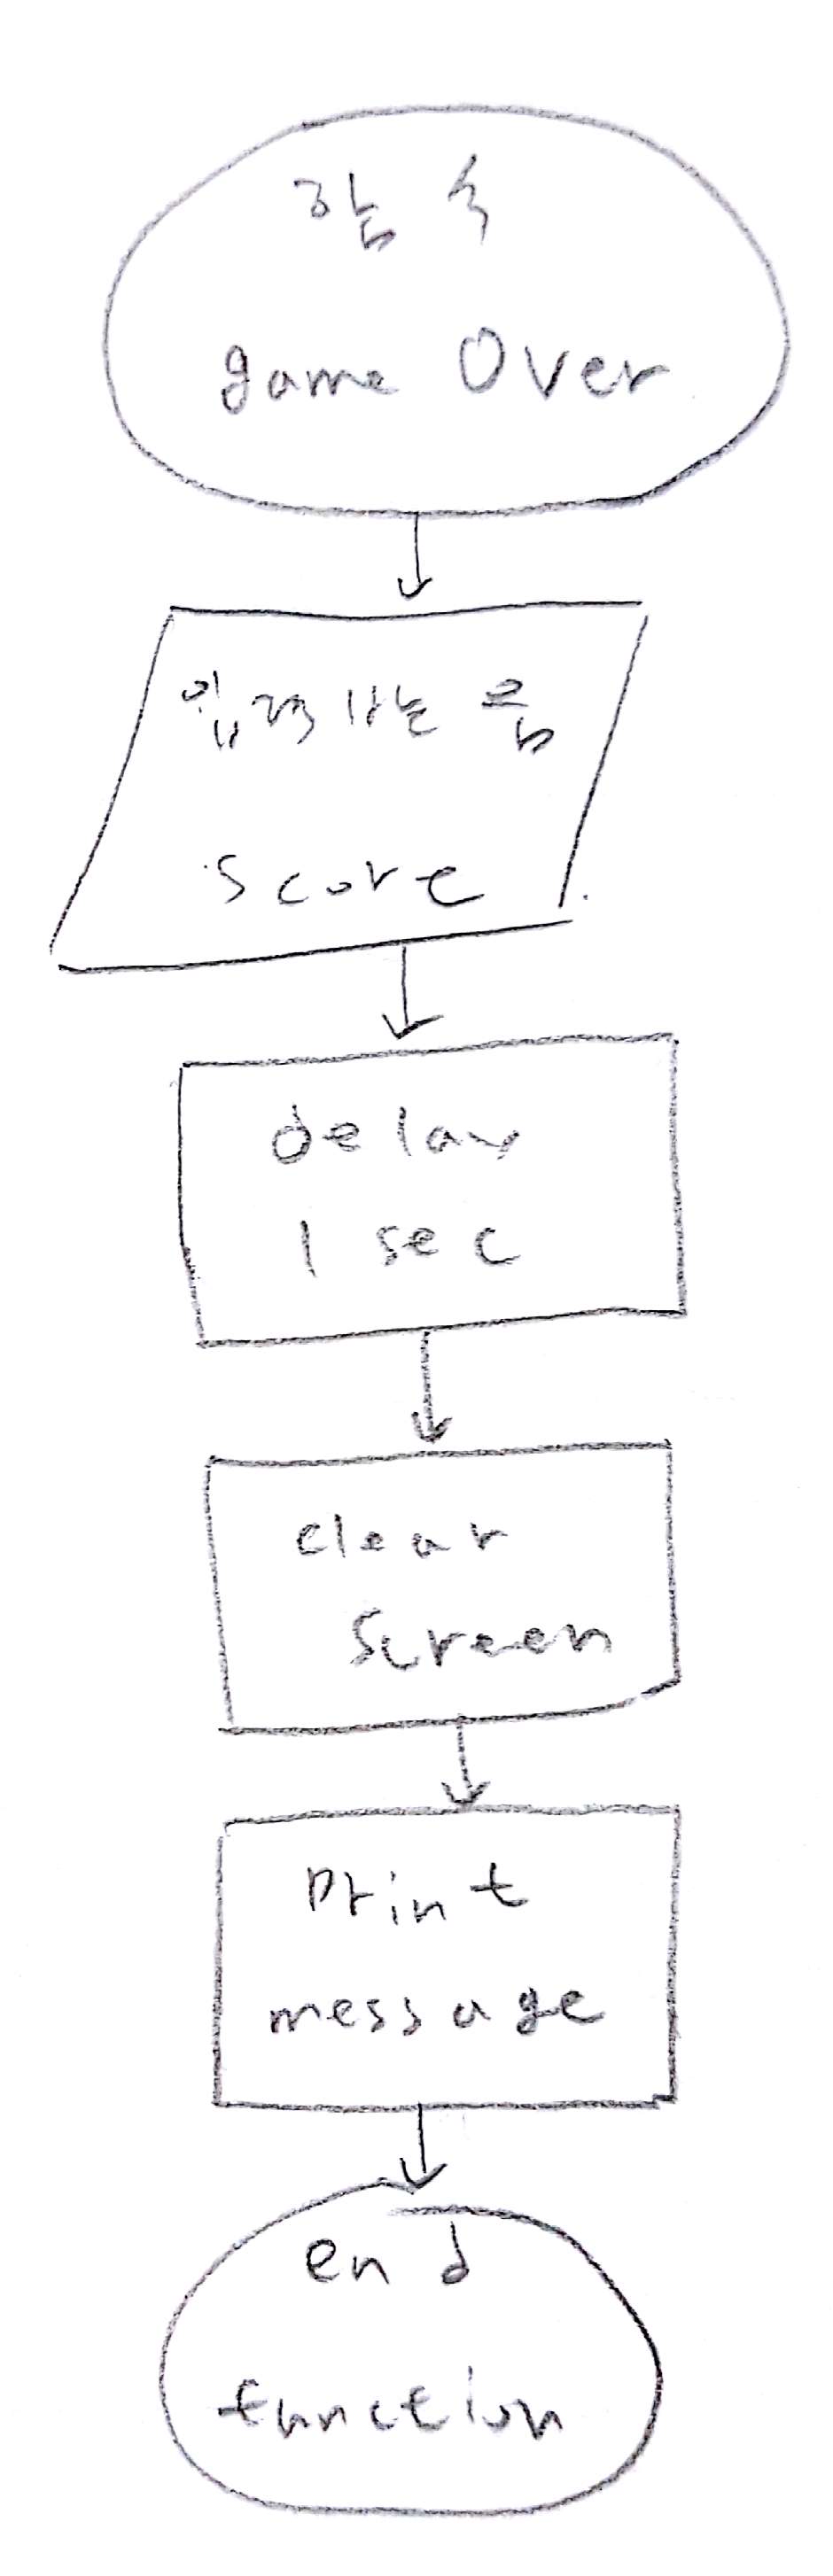 함수
game Over
입력 받는 음
score
delay
1 sec
clear
screen
print
message
end
function